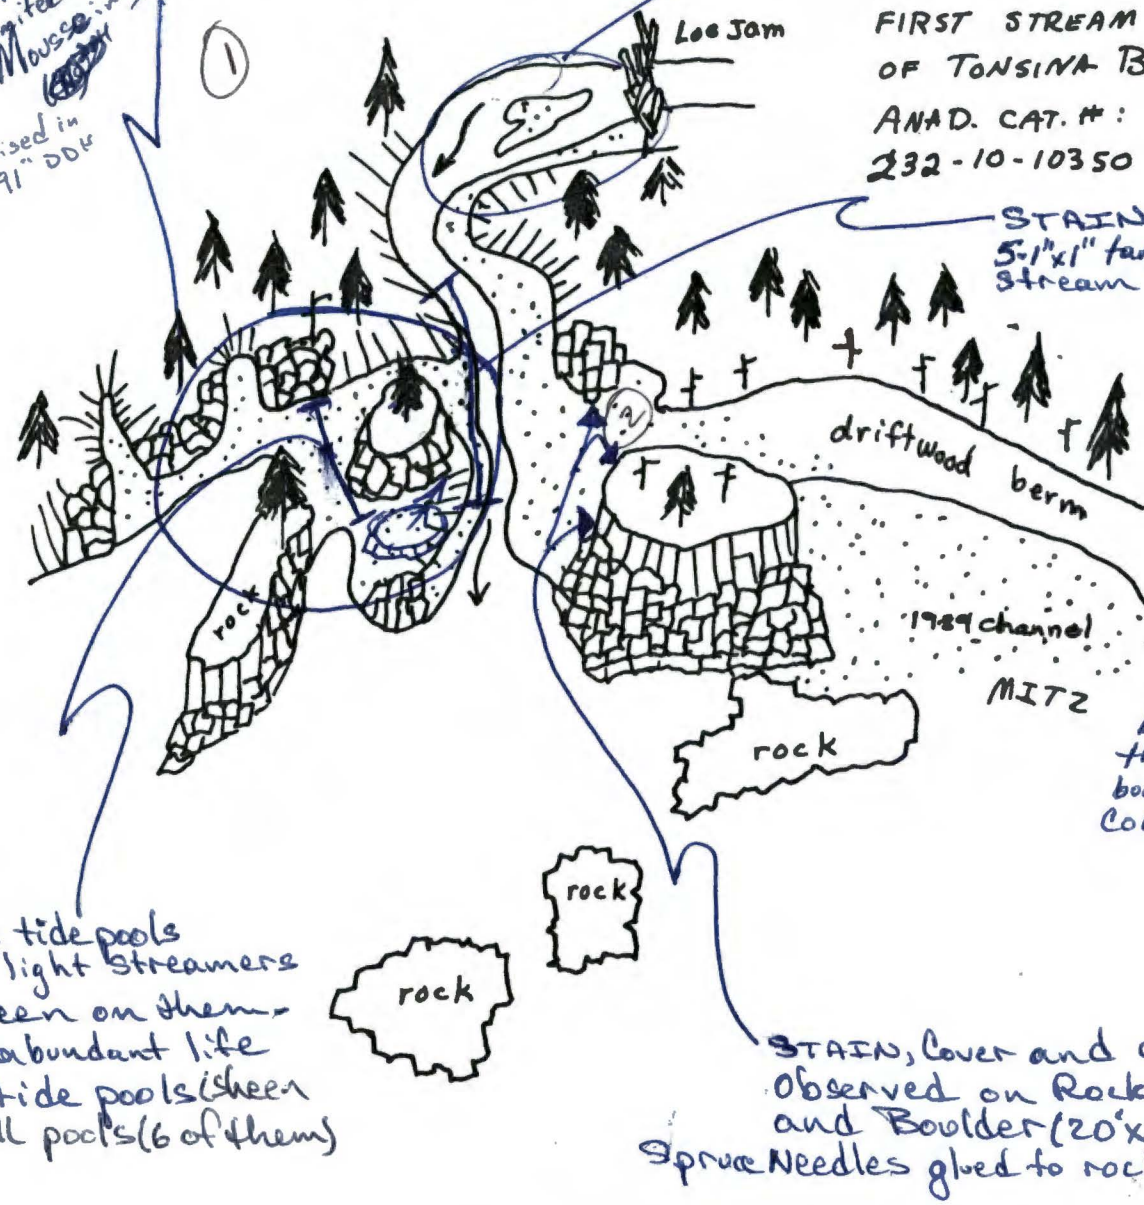 Mousse in
ised in
91" DDH
1
Log Jam
FIRST STREAM
OF TONSINA B
ANAD. CAT. #:
232-10-10350
STAIN
5-1"x1" tar
stream
2
driftwood berm
1989 channel
MITZ
rock
rock
rock
rock
th
bou
Col
tide pools
light streamers
een on them-
abundant life
tide pools (sheen
ll pools (6 of them)
STAIN, Cover and
Observed on Rock
and Boulder (20'x
Spruce Needles glued to roc